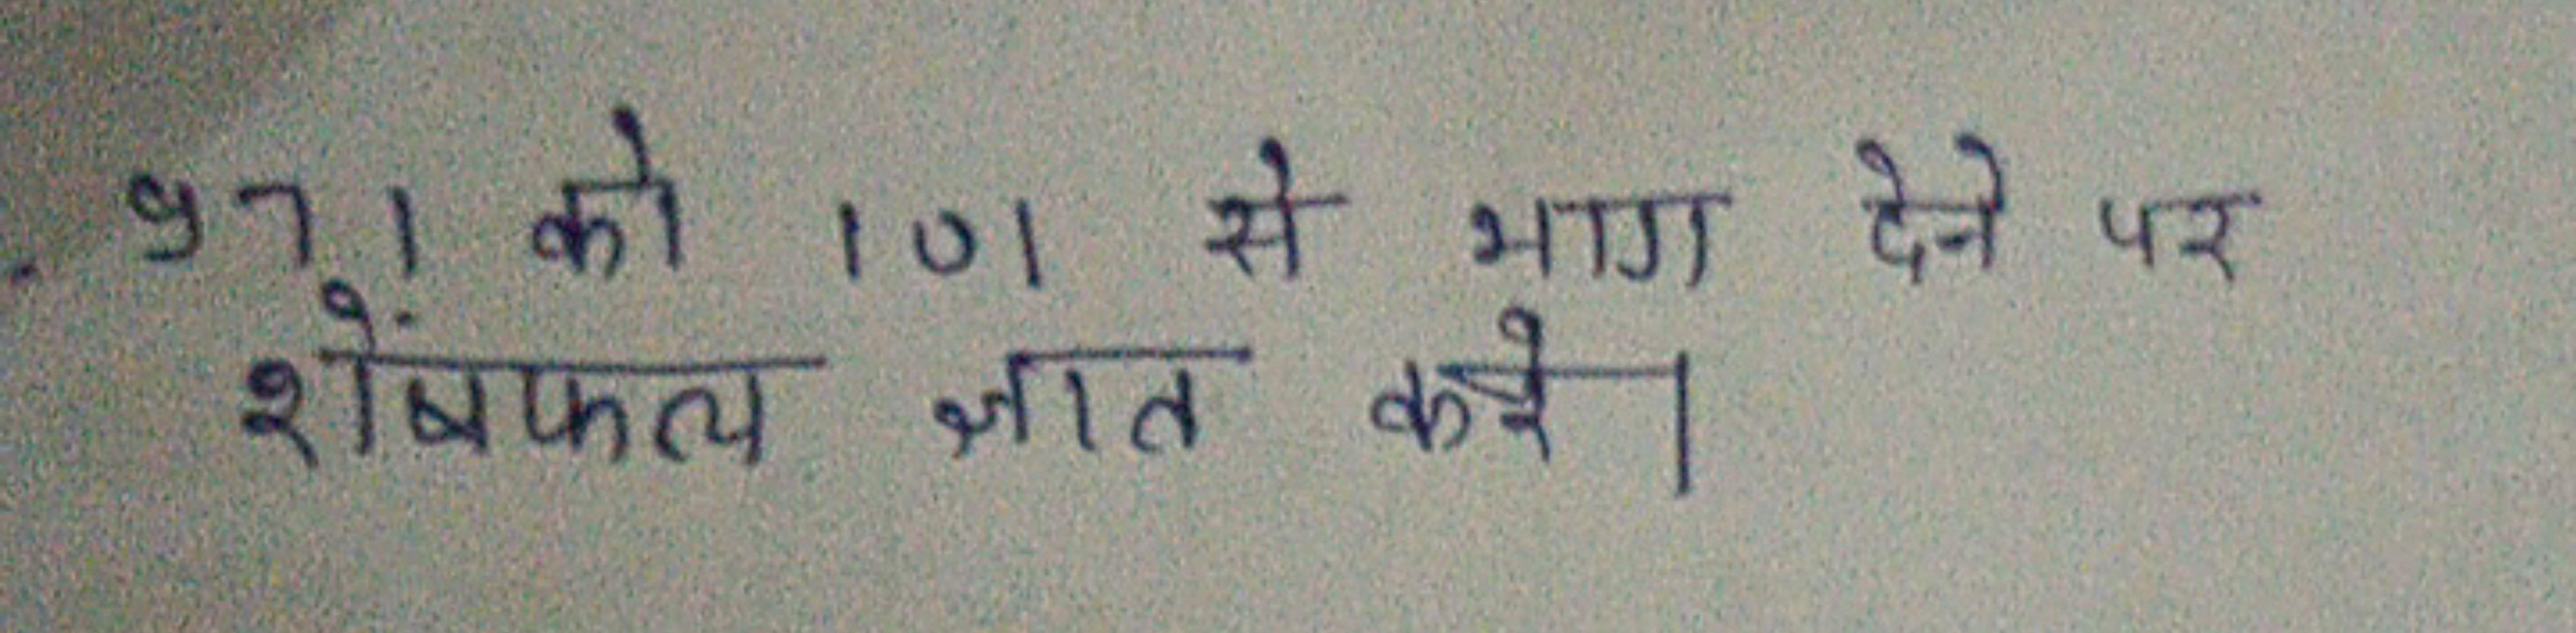 97! को 101 से भाग देने पर
शेषफल ज्ञात करे।